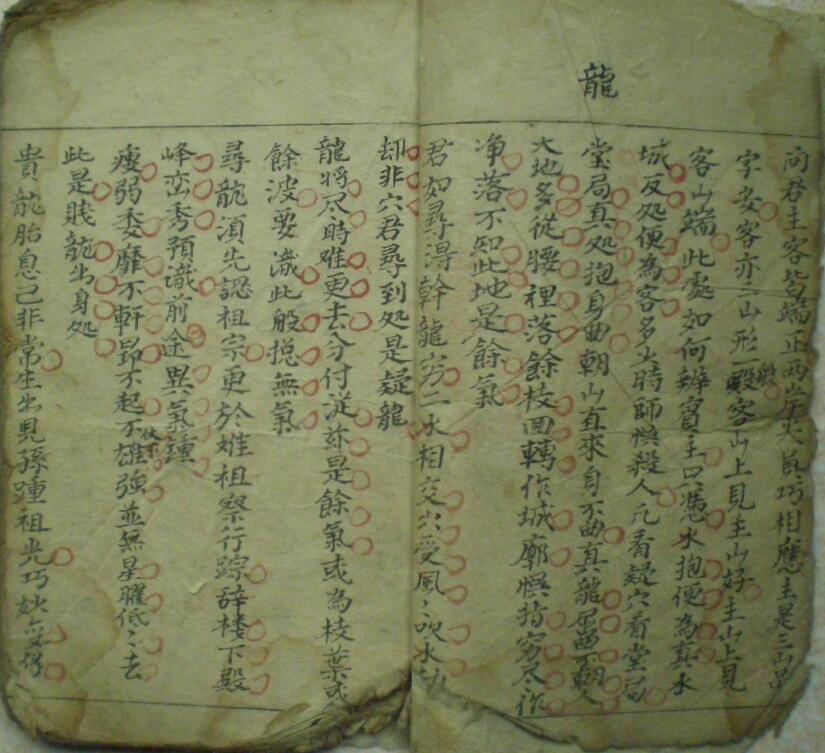 龍
問君主客皆端正兩岸尖員巧相應主是三山品
字安客亦三山形一般客山上見主山好主山上見
客山端此處如何辨賓主只憑水抱便為真水
城反処便為客多少時師悞殺人凢看疑穴看堂局
堂局真処抱身曲朝山直來身不曲真龍屈曲不朝人
大地多從腰裡落餘枝回轉作城廓悞指窮尽作
净落不知此地是餘氣
君如尋淂幹龍窮二水相交穴受風〻吹水劫
却非穴君尋到処是疑龍
龍將尽時难更去分付從茲是餘氣或為枝葉或
餘波要識此般捴無氣
尋龍湏先認祖宗更於难祖察行踪辞楼下殿
峰峦秀預識前途異氣鍾
瘦弱委靡不軒昻不起不雄強並無星曜低〻去
此是賤龍出身処
貴龍胎息己非常生出児孫踵祖光巧妙